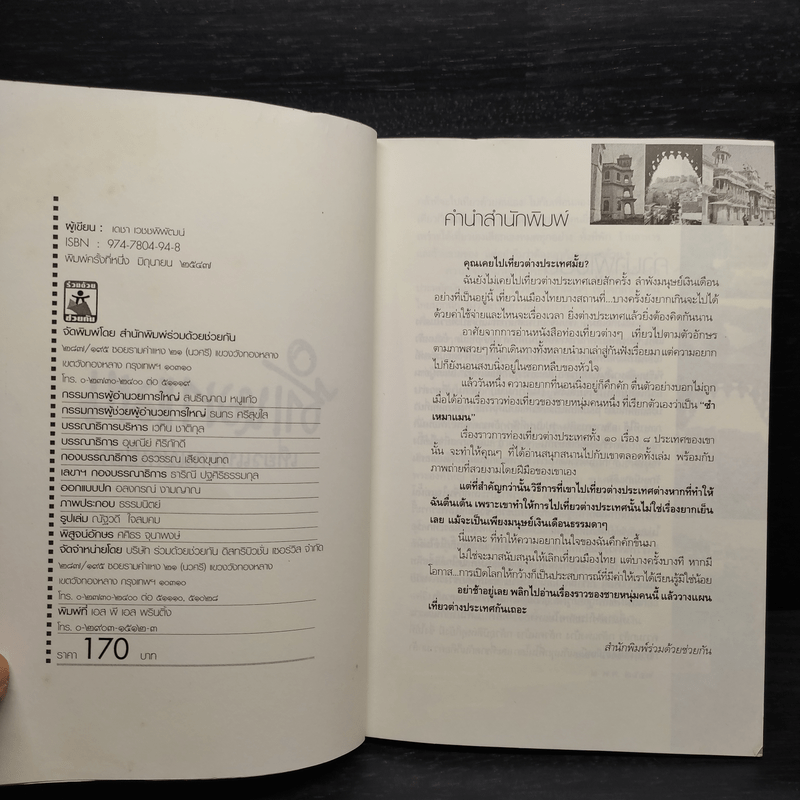 ผู้เขียน : เดชา เวชชพิพัฒน์
ISBN : 974-7804-94-8
พิมพ์ครั้งที่หนึ่ง มิถุนายน ๒๕๔๗
ร่วมด้วย
ช่วยกัน
จัดพิมพ์โดย สำนักพิมพ์ร่วมด้วยช่วยกัน
๒๘๗/๑๙๕ ซอยรามคำแหง ๒๑ (นวศรี) แขวงวังทองหลาง
เขตวังทองหลาง กรุงเทพฯ ๑๐๓๑๐
โทร. ๐-๒๗๓๐-๒๔๐๐ ต่อ ๕๑๑๑๙
กรรมการผู้อำนวยการใหญ่ สปริญาณ หนูแก้ว
กรรมการผู้ช่วยผู้อำนวยการใหญ่ ธนกร ศรีสุขใส
บรรณาธิการบริหาร เวทิน ชาติกุล
บรรณาธิการ อุษณีย์ ศิริภักดี
กองบรรณาธิการ อรวรรณ เสียดขุนทด
เลขาฯ กองบรรณาธิการ ราริณี ปฐศิริธรรมกุล
ออกแบบปก อลงกรณ์ งามญาณ
ภาพประกอบ ธรรมนิตย์
รูปเล่ม ณัฐวดี ใจสมคม
พิสูจน์อักษร ศศิธร จุนาพงษ์
จัดจำหน่ายโดย บริษัท ร่วมด้วยช่วยกัน ดิสทริบิวชั่น เซอร์วิส จำกัด
๒๘๗/๑๙๕ ซอยรามคำแหง ๒๑ (นวศรี) แขวงวังทองหลาง
เขตวังทองหลาง กรุงเทพฯ ๑๐๓๑๐
โทร. ๐-๒๗๓๐-๒๔๐๐ ต่อ ๕๑๑๑๐, ๕๑๐๒๘
พิมพ์ที่ เอส พี เอส พริ้นติ้ง
โทร. ๐-๒๙๐๓-๑๕๑๒-๓
ราคา 170 บาท
คำนำสำนักพิมพ์
คุณเคยไปเที่ยวต่างประเทศมั้ย?
ฉันยังไม่เคยไปเที่ยวต่างประเทศเลยสักครั้ง ลำพังมนุษย์เงินเดือน
อย่างที่เป็นอยู่นี้ เที่ยวในเมืองไทยบางสถานที่...บางครั้งยังยากเกินจะไปได้
ด้วยค่าใช้จ่ายและไหนจะเรื่องเวลา ยิ่งต่างประเทศแล้วยิ่งต้องคิดกันนาน
อาศัยจากการอ่านหนังสือท่องเที่ยวต่างๆ เที่ยวไปตามตัวอักษร
ตามภาพสวยๆ ที่นักเดินทางทั้งหลายนำมาเล่าสู่กันฟังเรื่อยมา แต่ความอยาก
ไปก็ยังนอนสงบนิ่งอยู่ในซอกหลืบของหัวใจ
แล้ววันหนึ่ง ความอยากที่นอนนิ่งอยู่ก็คึกคัก ตื่นตัวอย่างบอกไม่ถูก
เมื่อได้อ่านเรื่องราวท่องเที่ยวของชายหนุ่มคนหนึ่ง ที่เรียกตัวเองว่าเป็น "ซำ
เหมาแมน"
เรื่องราวการท่องเที่ยวประเทศทั้ง ๑๐ เรื่อง ๘ ประเทศของเขา
นั้น จะทำให้คุณๆ ที่ได้อ่านสนุกสนานไปกับเขาตลอดทั้งเล่ม พร้อมกับ
ภาพถ่ายที่สวยงามโดยฝีมือของเขาเอง
แต่ที่สำคัญกว่านั้นวิธีการที่เขาไปเที่ยวต่างประเทศต่างหากที่ทำให้
ฉันตื่นเต้น เพราะเขาทำให้การไปเที่ยวต่างประเทศนั้นไม่ใช่เรื่องยากเย็น
เลย แม้จะเป็นเพียงมนุษย์เงินเดือนธรรมดาๆ
นี่แหละ ที่ทำให้ความอยากในใจของฉันคึกคักขึ้นมา
ไม่ใช่จะมาสนับสนุนให้เลิกเที่ยวเมืองไทย แต่บางครั้งบางที หากมี
โอกาส...การเปิดโลกให้กว้างก็เป็นประสบการณ์ที่มีค่าให้เราได้เรียนรู้มิใช่น้อย
อย่าช้าอยู่เลย พลิกไปอ่านเรื่องราวของชายหนุ่มคนนี้ แล้ววางแผน
เที่ยวต่างประเทศกันเถอะ
สำนักพิมพ์ร่วมด้วยช่วยกัน